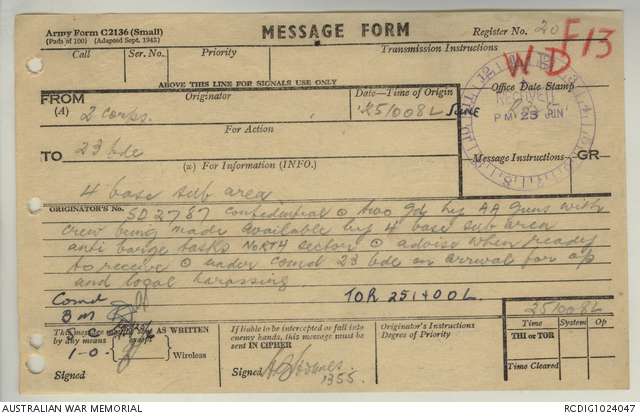 Army Form C2136 (Small)
(Pads of 100) (Adapted Sept. 1943)
MESSAGE FORM
Register No. 20
F13
Call Ser. No. Priority Transmission Instructions
WD
ABOVE THIS LINE FOR SIGNALS USE ONLY
Office Date Stamp
FROM Originator Date—Time of Origin
(A) 2 Corps. 251008L JUNE
RECEIVED
PM 25 JUN
For Action
TO 23 bde
(w) For Information (INFO.)
Message Instructions GR
4 base sub area
ORIGINATOR'S No. SD2787 confidential ⊙ two hy AA guns with
crew being made available by 4 base sub area
anti barge tasks NORTH sector ⊙ advise when ready
to receive ⊙ under comd 23 bde on arrival for
and harassing
Comd
BM
TOR 251400L.
251008L
This message may be sent AS WRITTEN
by any means except
Wireless
S.C.
I.O.
Signed
If liable to be intercepted or fall into
enemy hands, this message must be
sent IN CIPHER
Signed
1355.
Originator's Instructions
Degree of Priority
Time System Op
THI or TOR
Time Cleared
AUSTRALIAN WAR MEMORIAL
RCDIG1024047